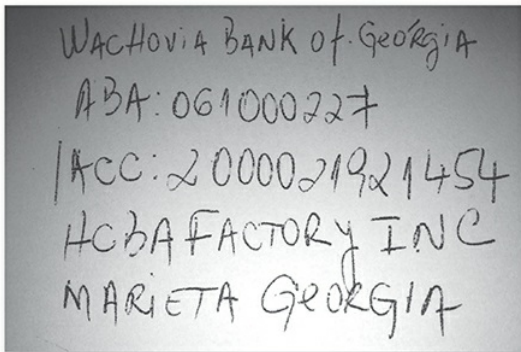 WACHOViA BANK of. GeórgiA
ABA: 061000227
ACC: 2000021921454
HCBAFACTORY INC
MARiETA GeORGIA